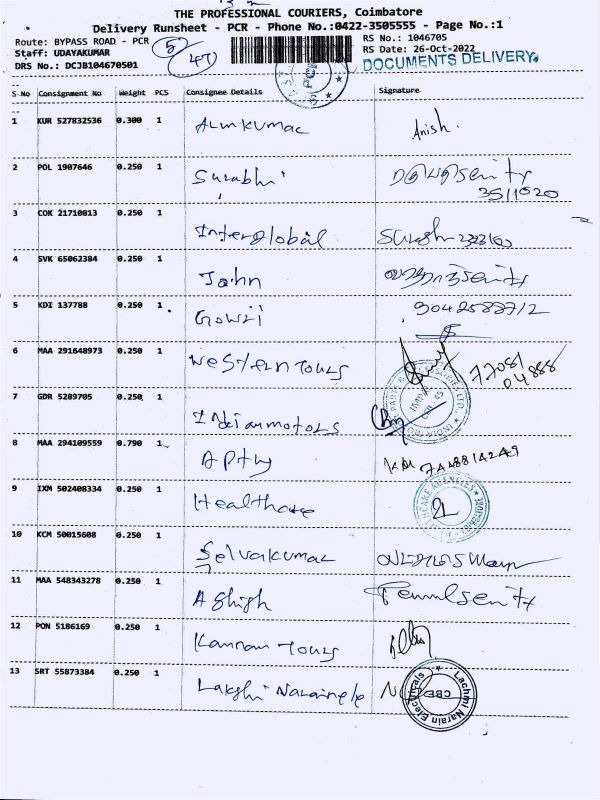 THE PROFESSIONAL COURIERS, Coimbatore
Delivery Runsheet - PCR - Phone No.:0422-3505555 - Page No.:1
Route: BYPASS ROAD - PCR
RS No.: 1046705
Staff: UDAYAKUMAR
RS Date: 26-Oct-2022
DRS No.: DCJB104670501
DOCUMENTS DELIVERY
S No Consignment No Weight PCS Consignee Details Signature
1 KUR 527832536 0.300 1 Anish.
2 POL 1907646 0.250 1 Surabhi
3 COK 21710813 0.250 1 Interglobal
4 SVK 65062384 0.250 1 John
5 KDI 137788 0.250 1 Gowri
6 MAA 291648973 0.250 1 Western Tours
7 GDR 5289705 0.250 1 Indian motors
8 MAA 294109559 0.790 1
9 IXM 502408334 0.250 1 Healthcare
10 KCM 50015608 0.250 1 Selvakumar
11 MAA 548343278 0.250 1
12 PON 5186169 0.250 1 Kannan Tours
13 SRT 55873384 0.250 1
Lachmi Narain Electricals
CBE